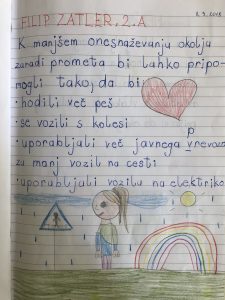 FILIP ZATLER, 2.A
K manjšem onesnaževanju okolja
zaradi prometa bi lahko pripo-
mogli tako, da bi:
• hodili več peš
• se vozili s kolesi
p
• uporabljali več javnega vrevoza
za manj vozil na cesti
• uporabljali vozilu na elektriko